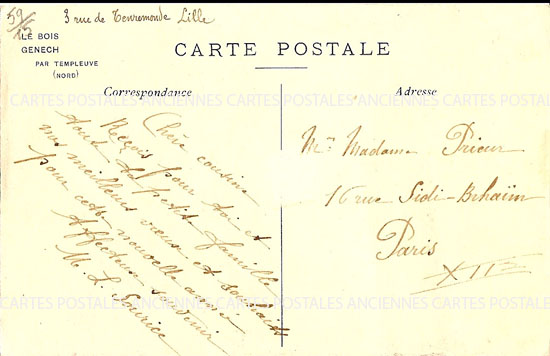 59/15
3 rue de Tenremonde Lille
LE BOIS
GENECH
PAR TEMPLEUVE
(NORD)
CARTE POSTALE
Correspondance
Adresse
CARTES POSTALES ANCIENNES CARTES POSTALES ANCIENNES CARTES POSTALES
Chère cousine
Reçois pour toi et
toute ta petite famille
mes meilleurs vœux et souhaits
pour cette nouvelle année
Affectueux souvenir
M. L.
Mr Madame Prieur
16 rue Sidi-Brahim
Paris
XIIe
CARTES POSTALES ANCIENNES CARTES POSTALES ANCIENNES CARTES POSTALES